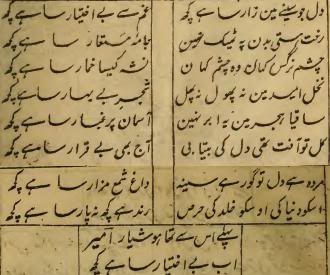 دل جو سینے مین زار سا ہے کچھ
غم سے بے اختیار سا ہے کچھ
رخت ہستی بدن پہ ٹھیک نہین
جامۂ مستعار سا ہے کچھ
چشم نرگس کہان وہ چشم کہان
نشہ کیسا خمار سا ہے کچھ
نخل امید مین نہ پھول نہ پھل
شجر بے بہار سا ہے کچھ
ساقیا ہجر مین یہ ابر نہین
آسمان پر غبار سا ہے کچھ
کل تو آفت تھی دل کی بیتابی
آج بھی بے قرار سا ہے کچھ
مردہ ہے دل تو گور ہے سینہ
داغ شمع مزار سا ہے کچھ
اسکو دنیا کی اوسکو خلد کی حرص
رند ہے کچھ نہ پارسا ہے کچھ
پہلے اس سے تھا ہوشیار امیر
اب بے اختیار سا ہے کچھ